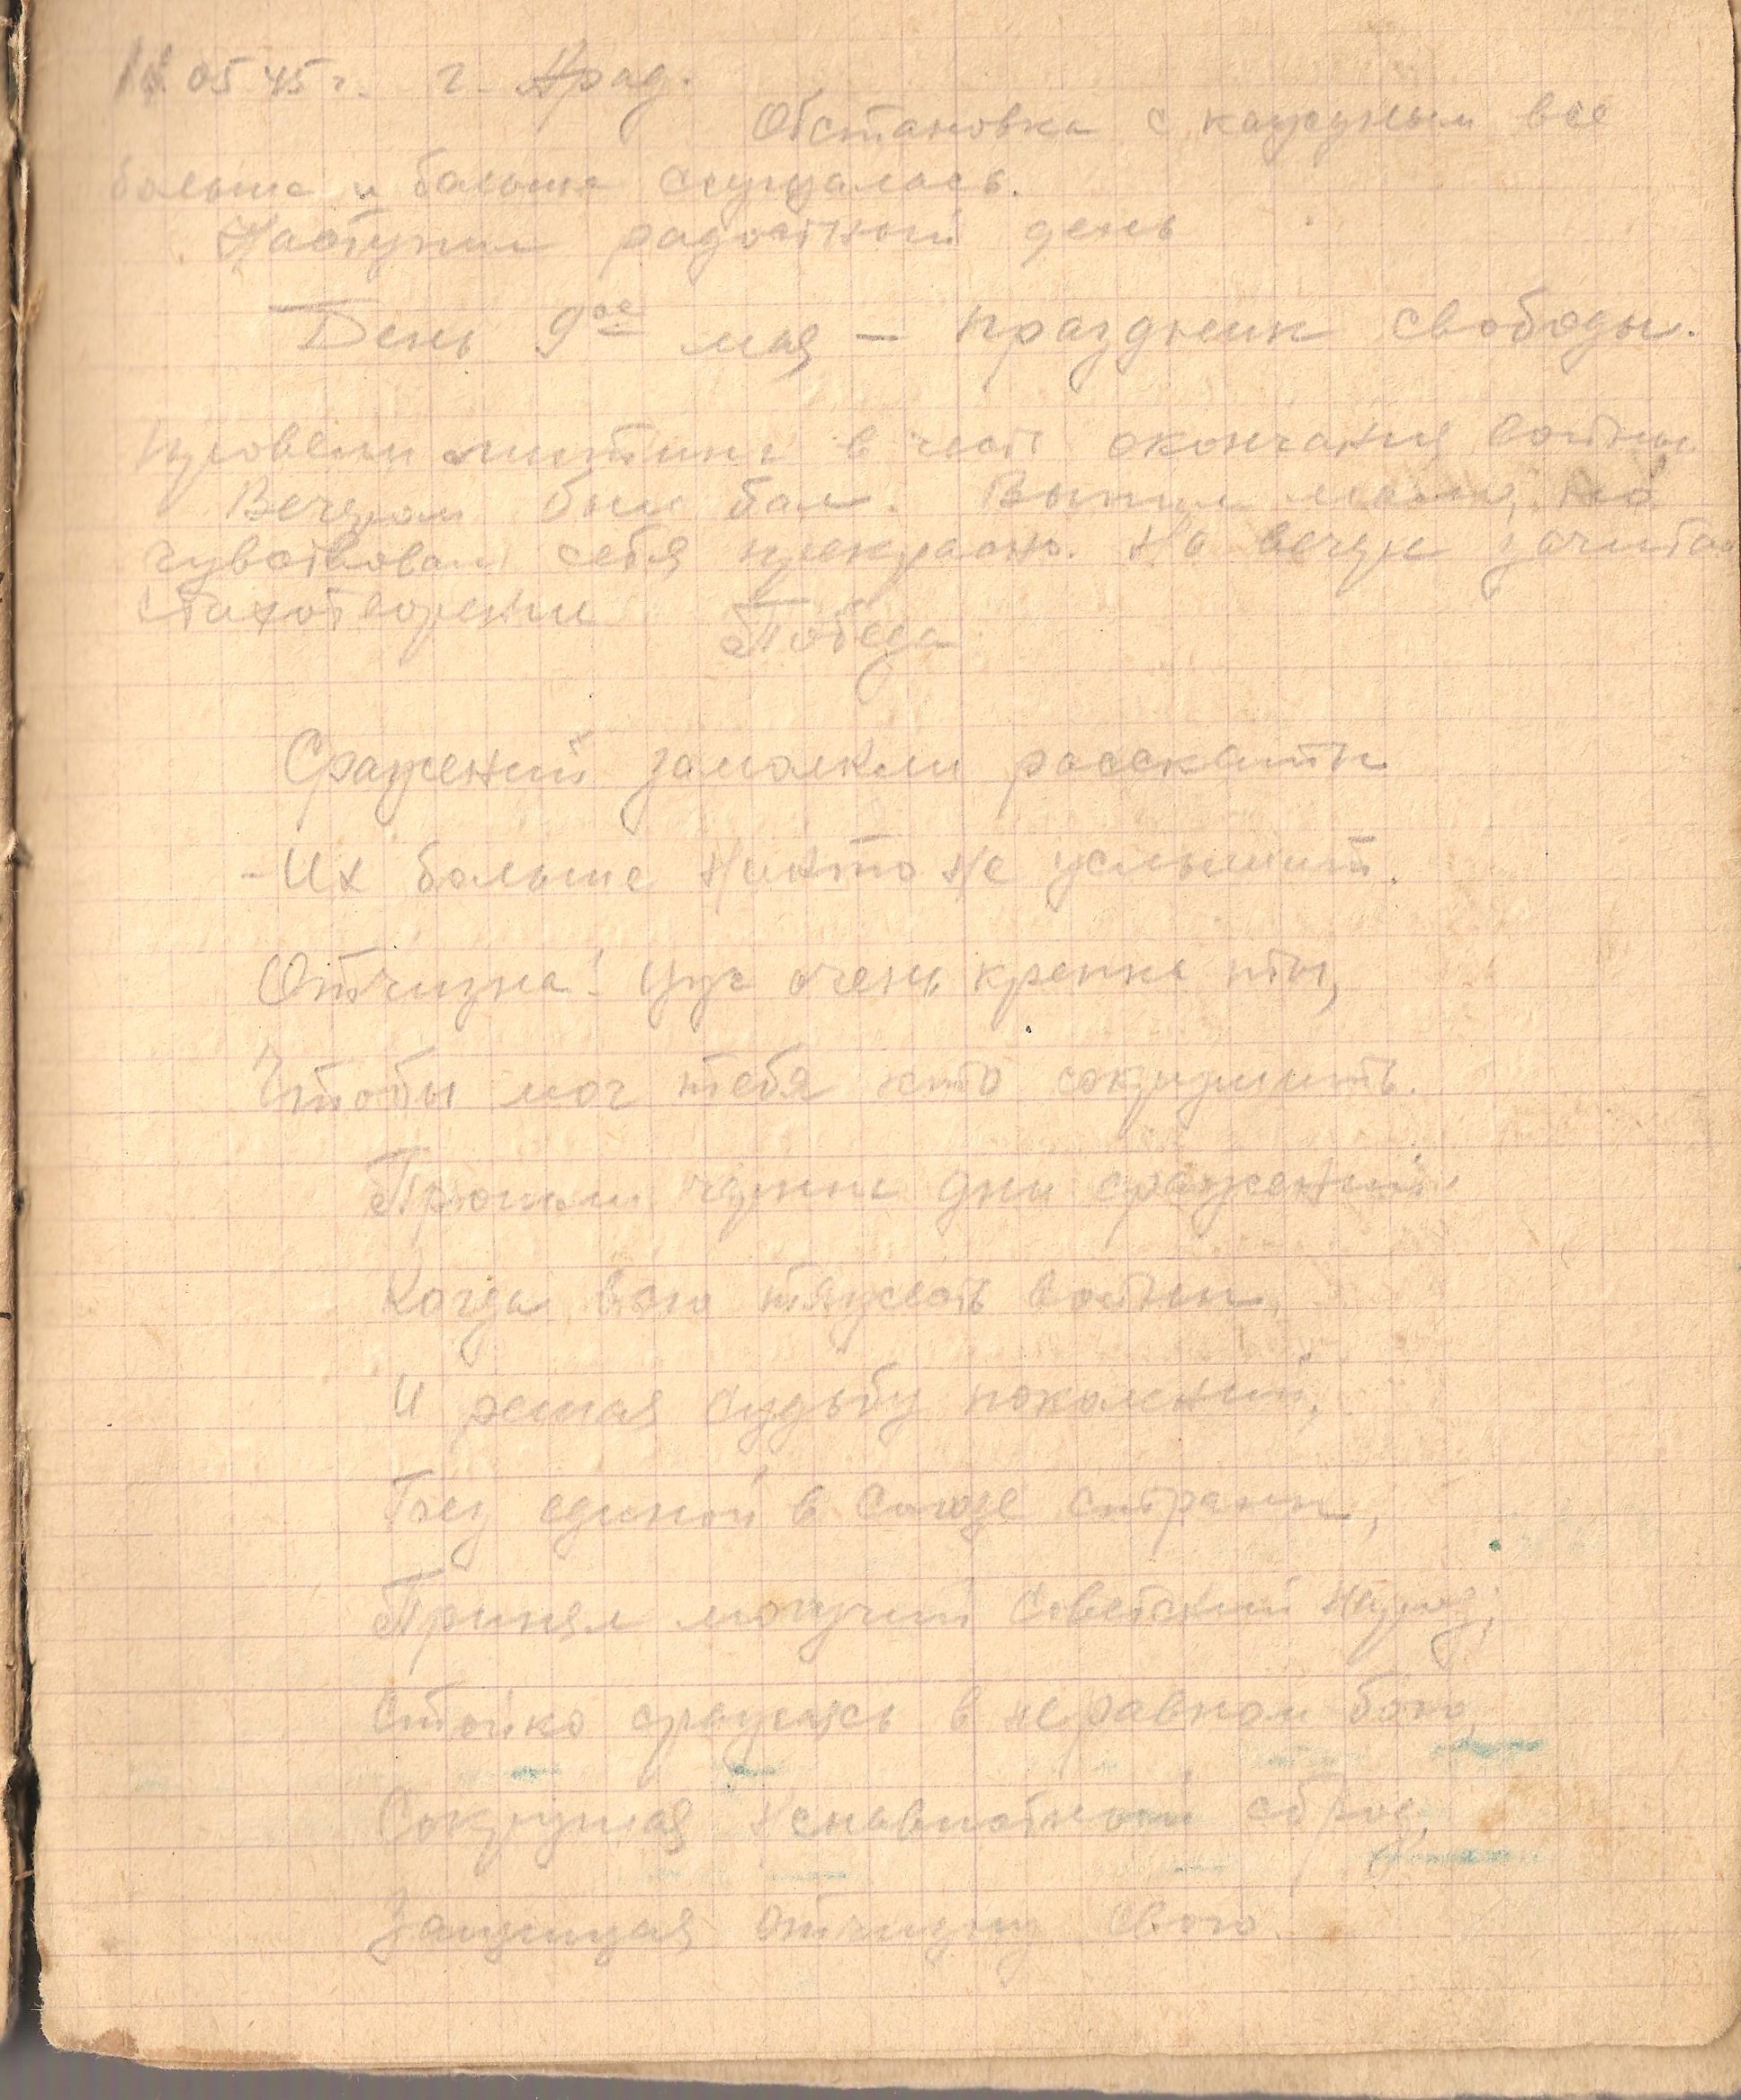 11.05.45 г. г. Арад.
Обстановка с каждым все
больше и больше сгущалась.
Наступил радостный день
День 9ое мая — праздник свободы.
Провели митинг в чест окончания войны
Вечером был бал. Выпил мало, но
чувствовал себя прекрасно. На вечере зачитал
стихотворение Победа
Сражений замолкли раскаты
- Их больше никто не услышит.
Отчизна! Уж очень крепка ты,
Чтобы мог тебя кто сокрушить.
Прошли черные дни сражений
Когда всю тяжесть войны,
И решая судьбу поколений,
Без единой в Союзе страны,
Принял могучий Советский народ;
Стойко сражаясь в неравном бою,
Сокрушая ненавистный сброд
Защищая отчизну свою